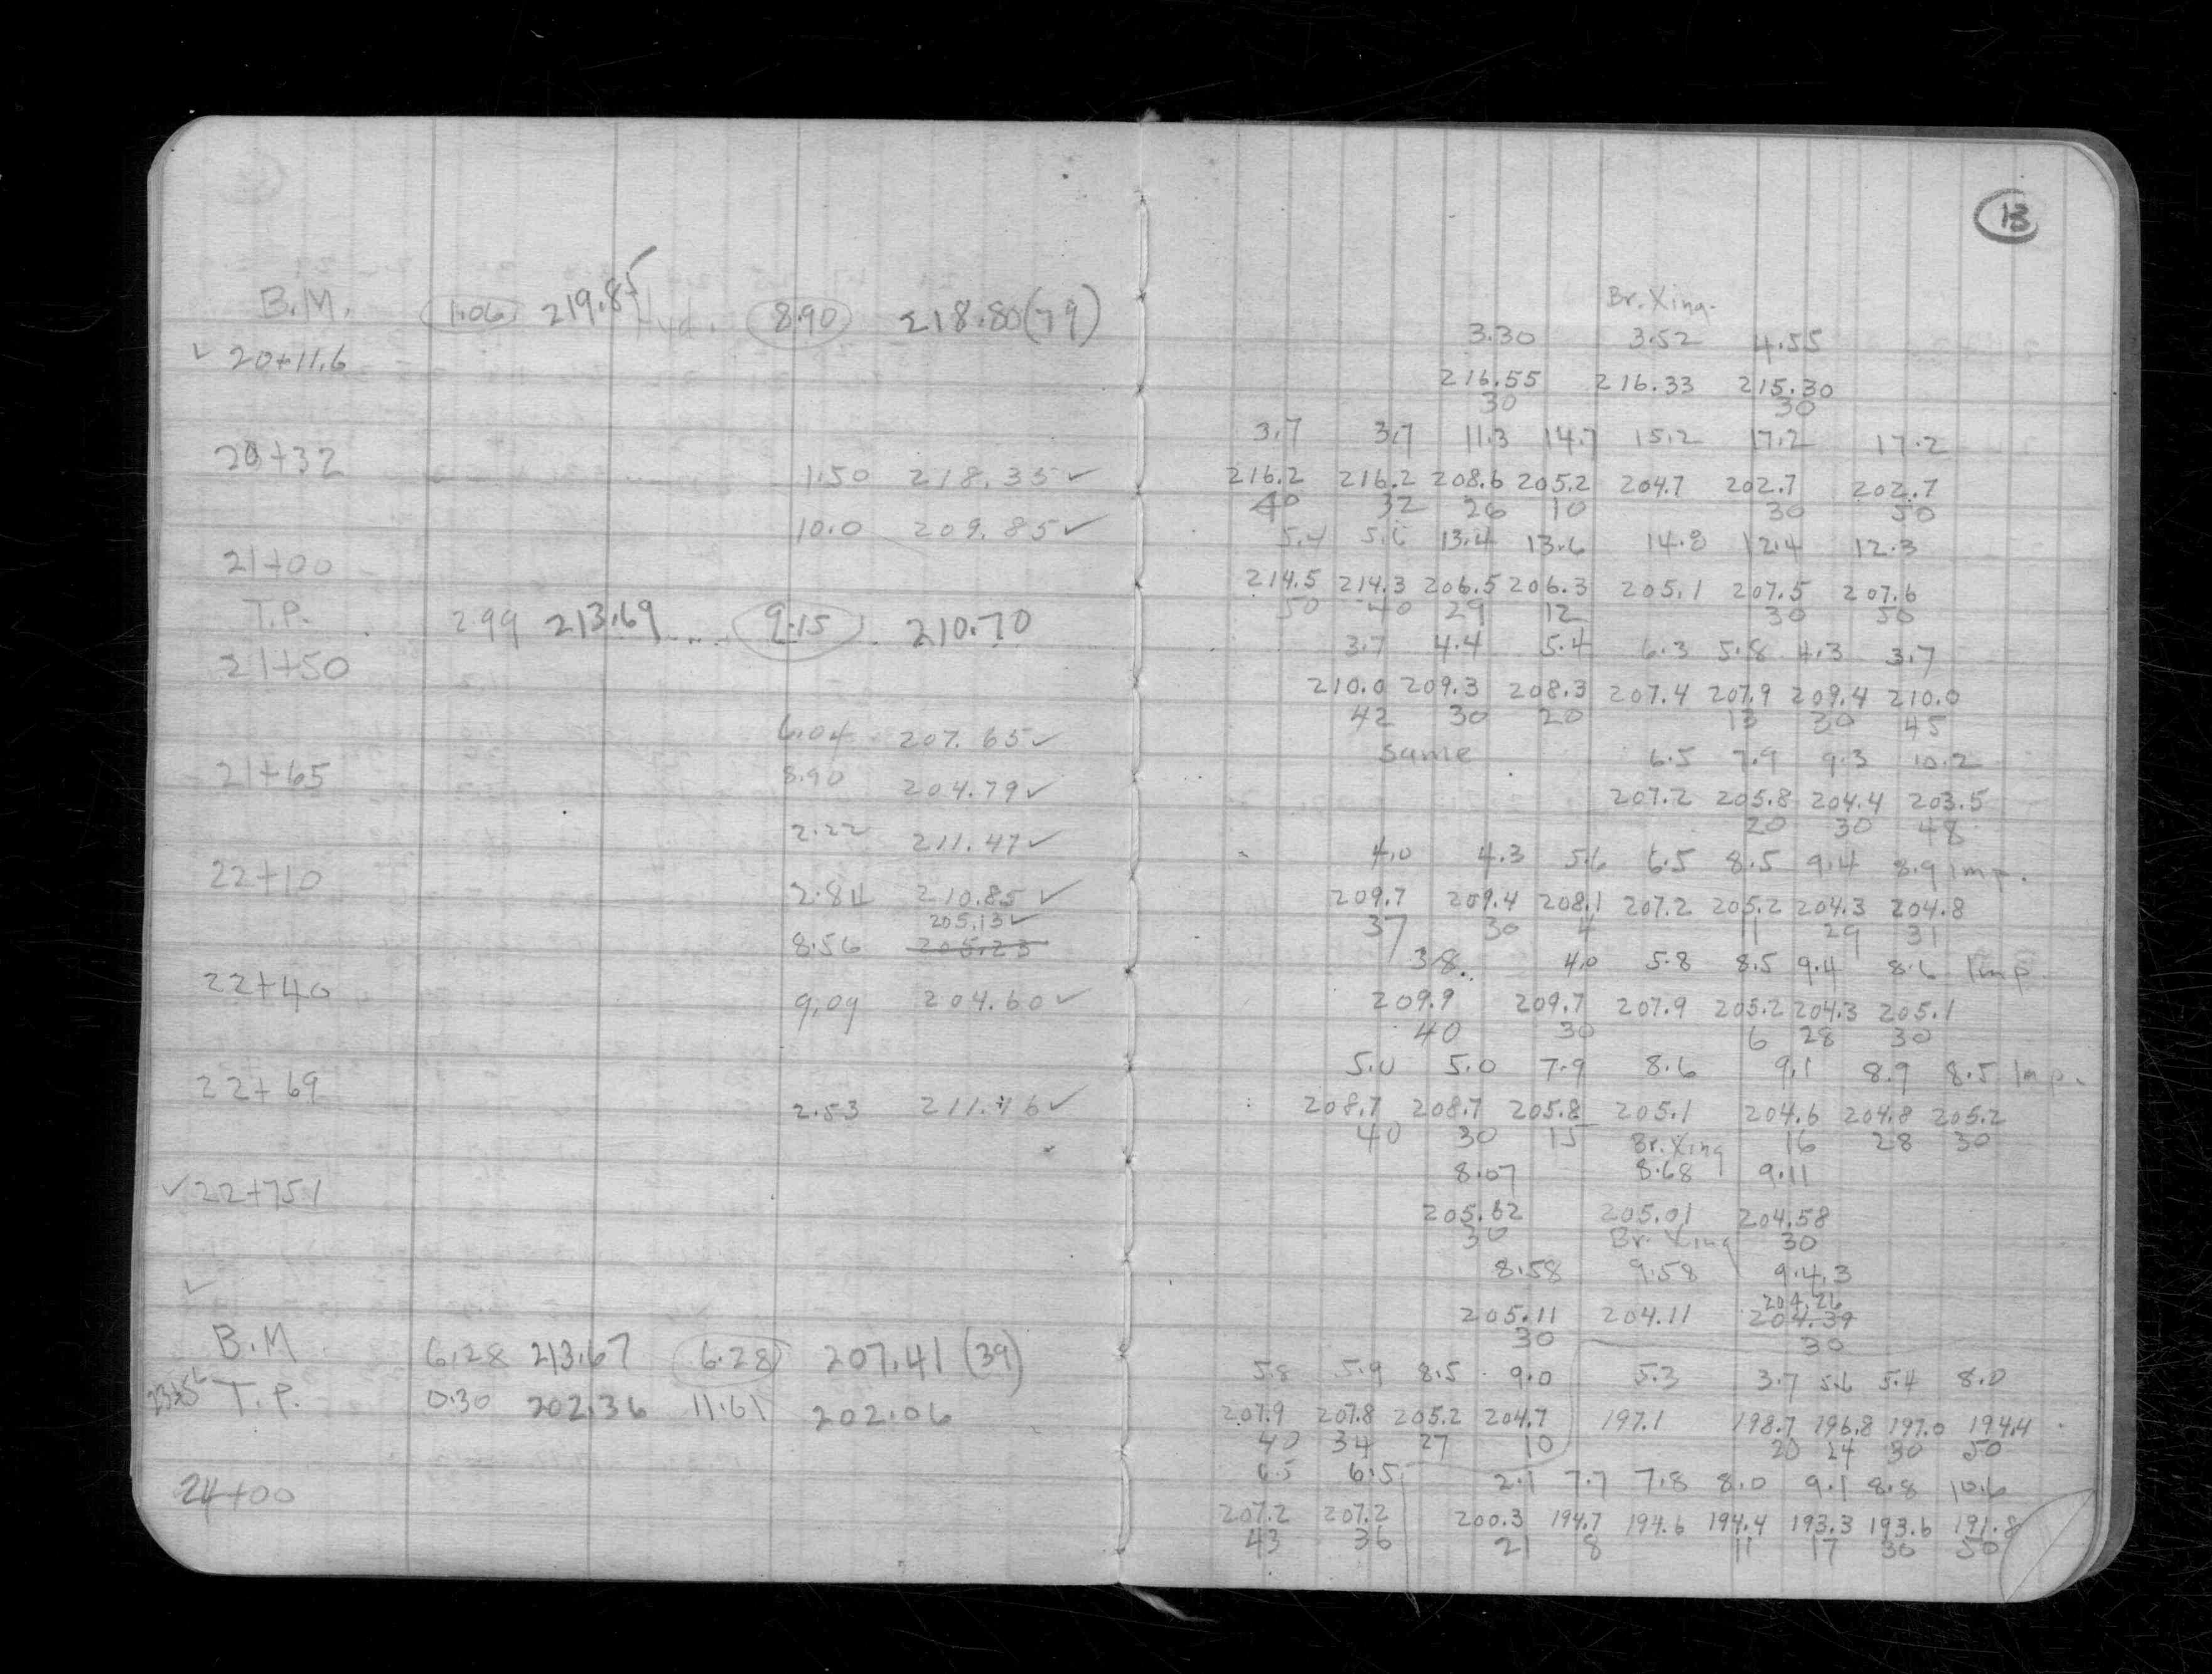 13
B.M. 1.06 219.85 8.90 218.80(79)
✓ 20+11.6
20+32
1.50 218.35 ✓
10.0 209.85 ✓
21+00
T.P. 2.99 213.69 9.15 210.70
21+50
6.04 207.65 ✓
21+65
8.90 204.79 ✓
2.22 211.47 ✓
22+10
2.84 210.85 ✓
205.13 ✓
8.56 205.23
22+40
9.09 204.60 ✓
22+69
2.53 ✓
✓ 22+75.1
✓
B.M 6.28 213.67 6.28 207.41 (39)
T.P. 0.30 202.36 11.61 202.06
24+00
Br. Xing.
3.30 3.52 4.55
216.55 216.33 215.30
30 30
3.7 3.7 11.3 14.7 15.2 17.2 17.2
216.2 216.2 208.6 205.2 204.7 202.7 202.7
40 32 26 10 30 50
5.4 5.6 13.4 13.6 14.8 12.4 12.3
214.5 214.3 206.5 206.3 205.1 207.5 207.6
50 40 29 12 30 50
3.7 4.4 5.4 6.3 5.8 4.3 3.7
210.0 209.3 208.3 207.4 207.9 209.4 210.0
42 30 20 13 30 45
same 6.5 7.9 9.3 10.2
207.2 205.8 204.4 203.5
20 30 48
4.0 4.3 5.6 6.5 8.5 9.4 8.9 Imp.
209.7 209.4 208.1 207.2 205.2 204.3 204.8
37 30 4 11 29 31
3.8 4.0 5.8 8.5 9.4 8.6 Imp.
209.9 209.7 207.9 205.2 204.3 205.1
40 30 6 28 30
5.0 5.0 7.9 8.6 9.1 8.9 8.5 Imp.
208.7 208.7 205.8 205.1 204.6 204.8 205.2
40 30 15 16 28 30
Br. Xing
8.07 8.68 9.11
205.62 205.01 204.58
30 Br. Xing 30
8.58 9.58 9.43
204.26
205.11 204.11 204.39
30 30
5.8 5.9 8.5 9.0 5.3 3.7 5.6 5.4 8.0
207.9 207.8 205.2 204.7 197.1 198.7 196.8 197.0 194.4
40 34 27 10 20 24 30 50
6.5 6.5 2.1 7.7 7.8 8.0 9.1 8.8 10.6
207.2 207.2 200.3 194.7 194.6 194.4 193.3 193.6 191.8
43 36 21 8 11 17 30 50